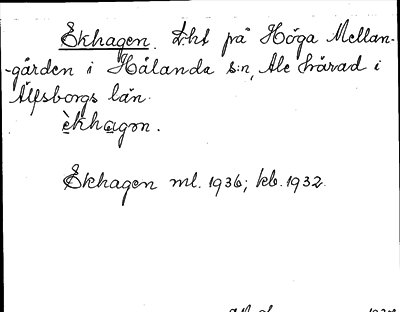 Ekhagen. Lht på Höga Mellan-
-gården i Hålanda s:n, Ale härad i
Älfsborgs län.
èkhagən.
Ekhagen ml. 1936; kb. 1932.